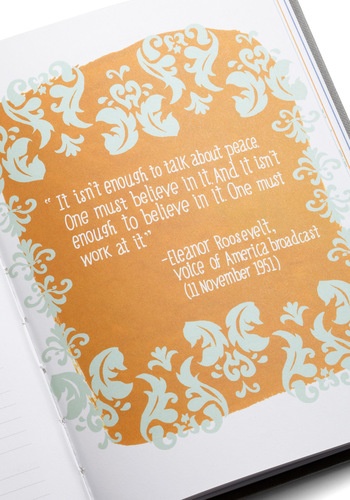 "It isn't enough to talk about peace
One must believe in it. And it isn't
enough to believe in it. One must
work at it"
-Eleanor Roosevelt,
Voice of America broadcast
(11 November 1951)